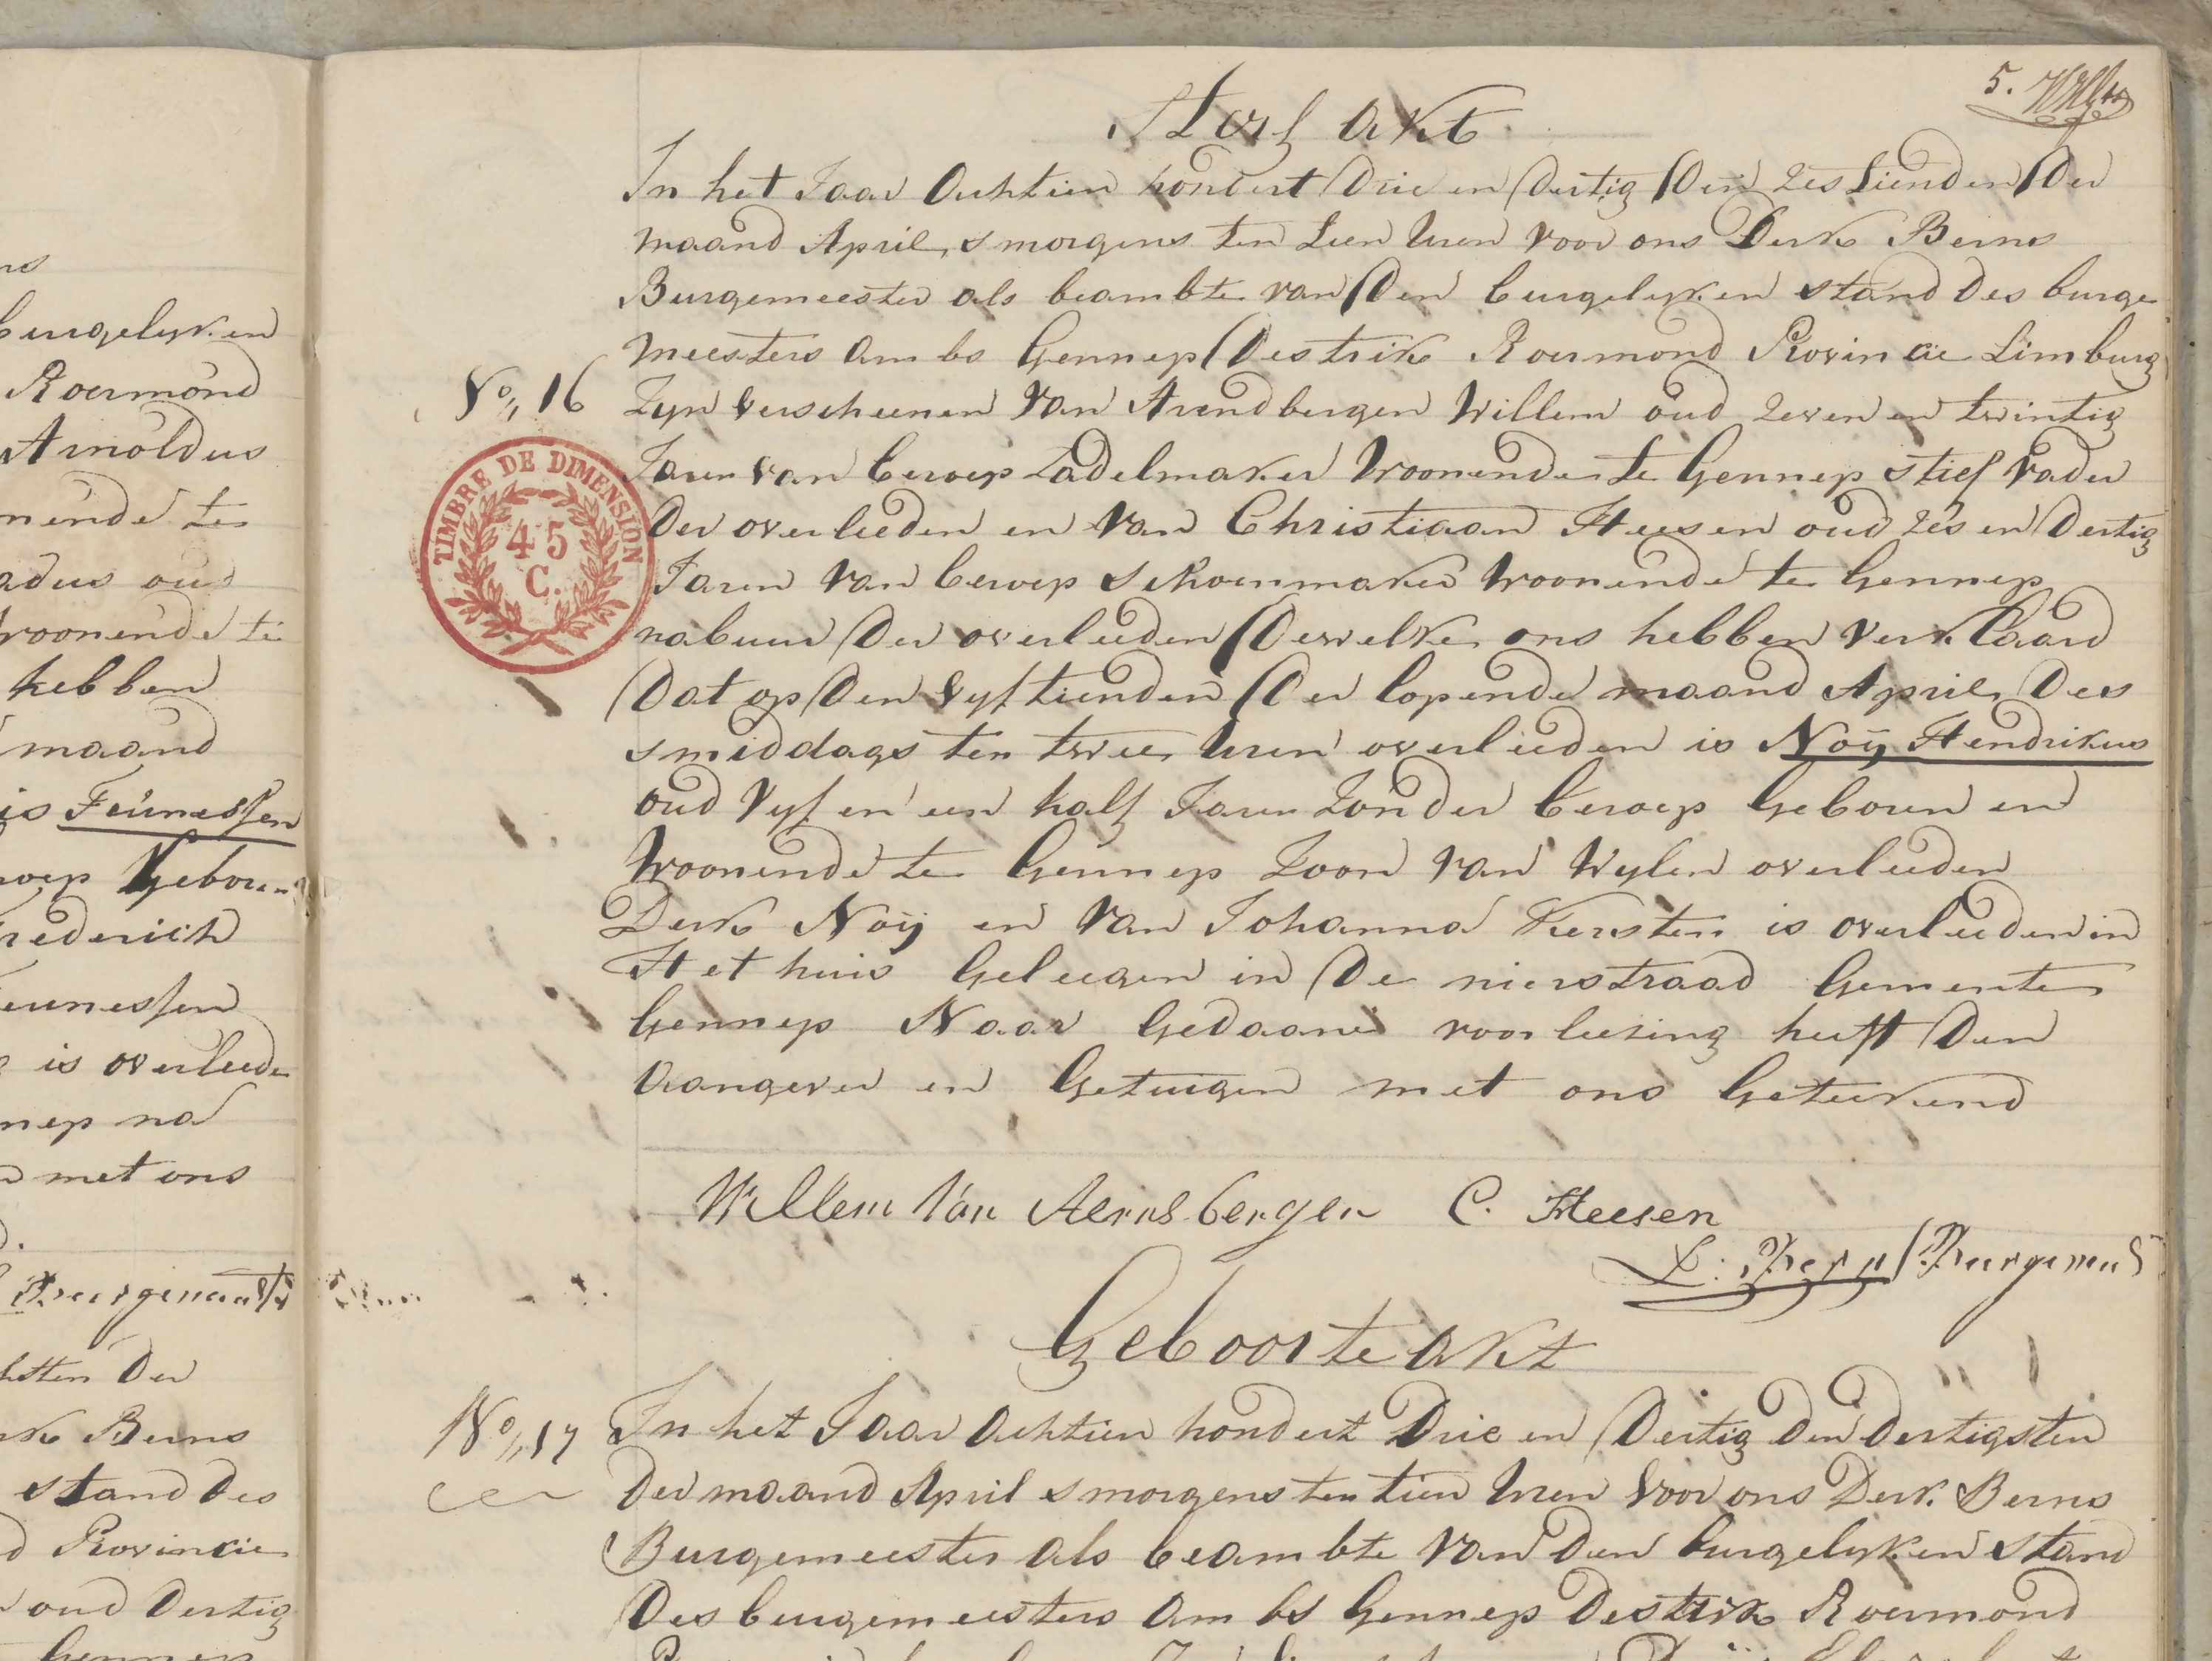 ns
burgelyken
Roermond
Arnoldus
nende te
adus oud
woonende te
hebben
maand
is Teunessen
roep Geboren
rederich
eunessen
is overleede
nep na
met ons
Burgemeester
htten der
rk Berns
stand des
d Provincie
oud dertig
Gennep
5.
Sterf akt
In het Jaar Achtien hondert Drie en Dertig Den zestienden Der
maand April, smorgens ten tien Uren voor ons Derk Berns
Burgemeester als beambte van Den burgelyken stand des burge
meesters Ambs Gennep Destrik Roermond Provincie Limburg
No. 16
Zyn verscheenen Van Arendbergen Willem oud zeven en twintig
Jaren van beroep Zadelmaker Woonende te Gennep stief Vader
Der overleeden en Van Christiaan Heesen oud zes en Dertig
Jaren van beroep schoenmaker Woonende te Gennep
nabuur Der overleeden Dewelke ons hebben verklaard
Dat op Den vyftienden Der lopende maand April, Des
smiddags ten twee Uren overleeden is Noij Hendrikus
oud Vyf en een half Jaren Zonder beroep Geboren en
Woonende te Gennep Zoon van Wylen overleeden
Derk Noij en Van Johanna Kersten is overleeden in
Het huis Geleegen in De nierstraad Gemente
Gennep Naar Gedaane voorleezing heeft Den
Aangever en Getuigen met ons Geteekend
TIMBRE DE DIMENSION
45
C.
Willem Van Aernsbergen C. Heesen
D. Berns Burgemees
Geboorte Akt
No. 17
In het Jaar Achtien hondert Drie en Dertig Den Dertigsten
Der maand April smorgens ten tien Uren Voor ons Derk Berns
Burgemeester als beambte Van Den burgelyken stand
Des burgemeesters Ambs Gennep Destrik Roermond